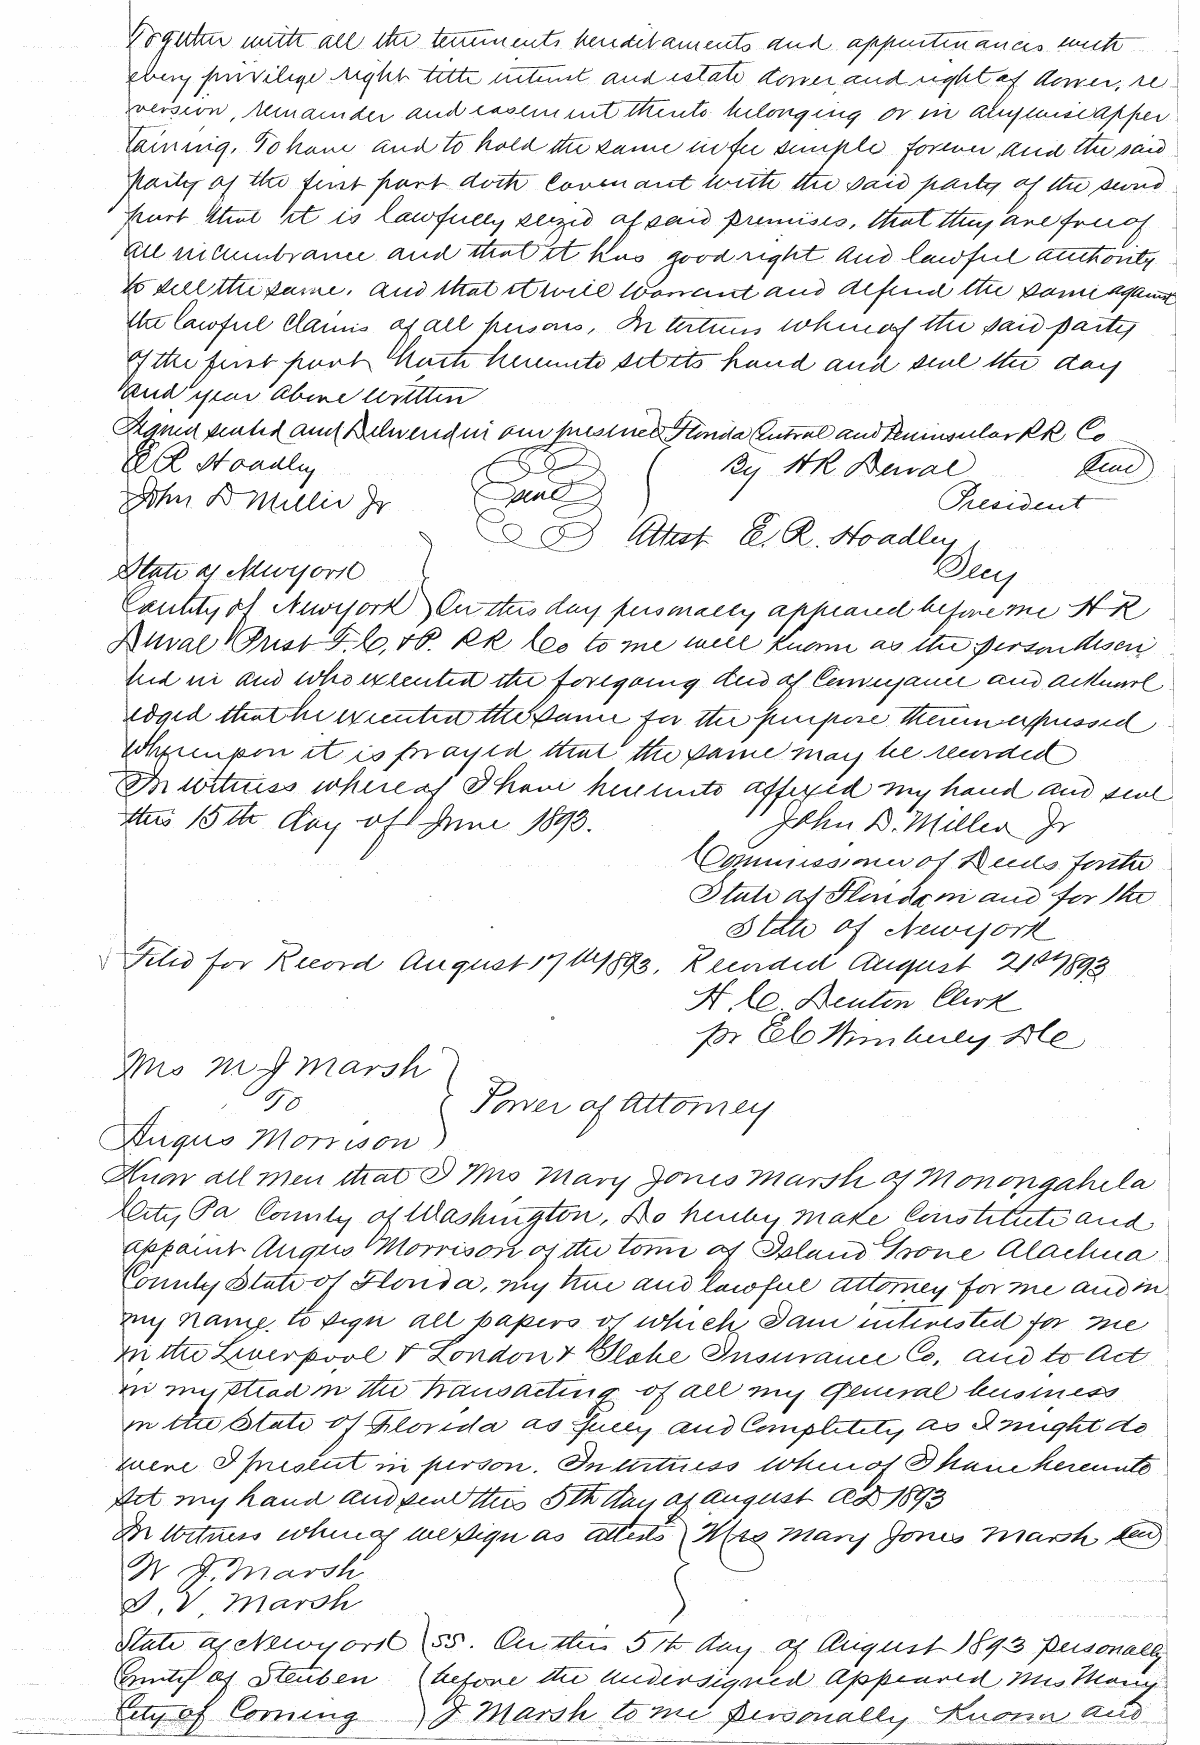 Together with all the tenements hereditaments and appurtenances with
every privilege right title interest and estate dower and right of dower, re
version, remainder and easement thereto belonging or in anywise apper
taining. To have and to hold the same in fee simple forever and the said
party of the first part doth Covenant with the said party of the second
part that it is lawfully seized of said premises, that they are free of
all incumbrance and that it has good right and lawful authority
to sell the same. and that it will warrant and defend the same against
the lawful claims of all persons, In witness whereof the said party
of the first part hath hereunto set its hand and seal the day
and year above written
Signed sealed and Delivered in our presence Florida Central and Peninsular RR Co
E R Hoadley By H R Duval Seal
John D Miller Jr Seal President
Attest E. R. Hoadley
State of Newyork Secy
County of Newyork On this day personally appeared before me H R
Duval Prest F. C. & P. RR Co to me well known as the person descri
bed in and who executed the foregoing deed of Conveyance and acknowl
edged that he executed the same for the purpose therein expressed
whereupon it is prayed that the same may be recorded
In witness whereof I have hereunto affixed my hand and seal
this 15th day of June 1893. John D. Miller Jr
Commissioner of Deeds for the
State of Florida in and for the
State of Newyork
Filed for Record August 17th 1893. Recorded August 21st 1893
H. C. Denton Clerk
pr E C Wimberly D C
Mrs M J Marsh
To Power of Attorney
Angus Morrison
Know all men that I Mrs Mary Jones Marsh of Monongahela
City Pa County of Washington, Do hereby make Constitute and
appoint Angus Morrison of the town of Island Grove Alachua
County State of Florida, my true and lawful attorney for me and in
my name. to sign all papers of which I am interested for me
in the Liverpool & London & Globe Insurance Co, and to Act
in my stead in the transacting of all my General business
in the State of Florida as fully and Completely as I might do
were I present in person. In witness whereof I have hereunto
set my hand and seal this 5th day of August AD 1893
In witness whereof we sign as attests Mrs Mary Jones Marsh Seal
W J. Marsh
S. V. Marsh
State of Newyork ss. On this 5th day of August 1893 personally
County of Steuben before the undersigned appeared Mrs Mary
City of Corning J Marsh to me personally Known and